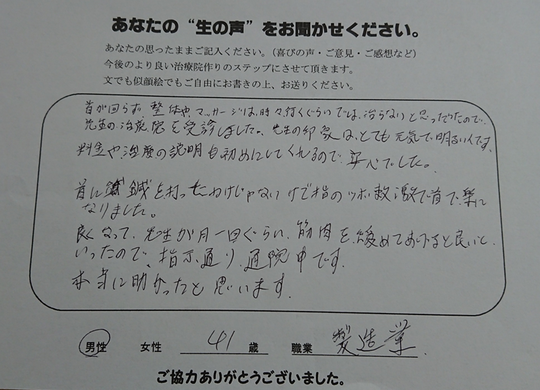 あなたの“生の声”をお聞かせください。
あなたの思ったままご記入ください。(喜びの声・ご意見・ご感想など)
今後のより良い治療院作りのステップにさせて頂きます。
文でも似顔絵でもご自由にお書きの上、お送りください。
首が回らず、整体や、マッサージは、時々行くぐらいでは、治らないと思ってたので、
先生の治療院を受診しました。先生の印象は、とても元気で明るい人です。
料金や治療の説明も初めにしてくれるので安心でした。
首に鍼を打ったわけじゃないけど指のツボ刺激で首で楽に
なりました。
良くなって、先生が月一回ぐらい、筋肉を緩めてあげると良いと
いったので、指示通り、通院中です。
本当に助かったと思います。
男性 女性 41歳 職業 製造業
ご協力ありがとうございました。